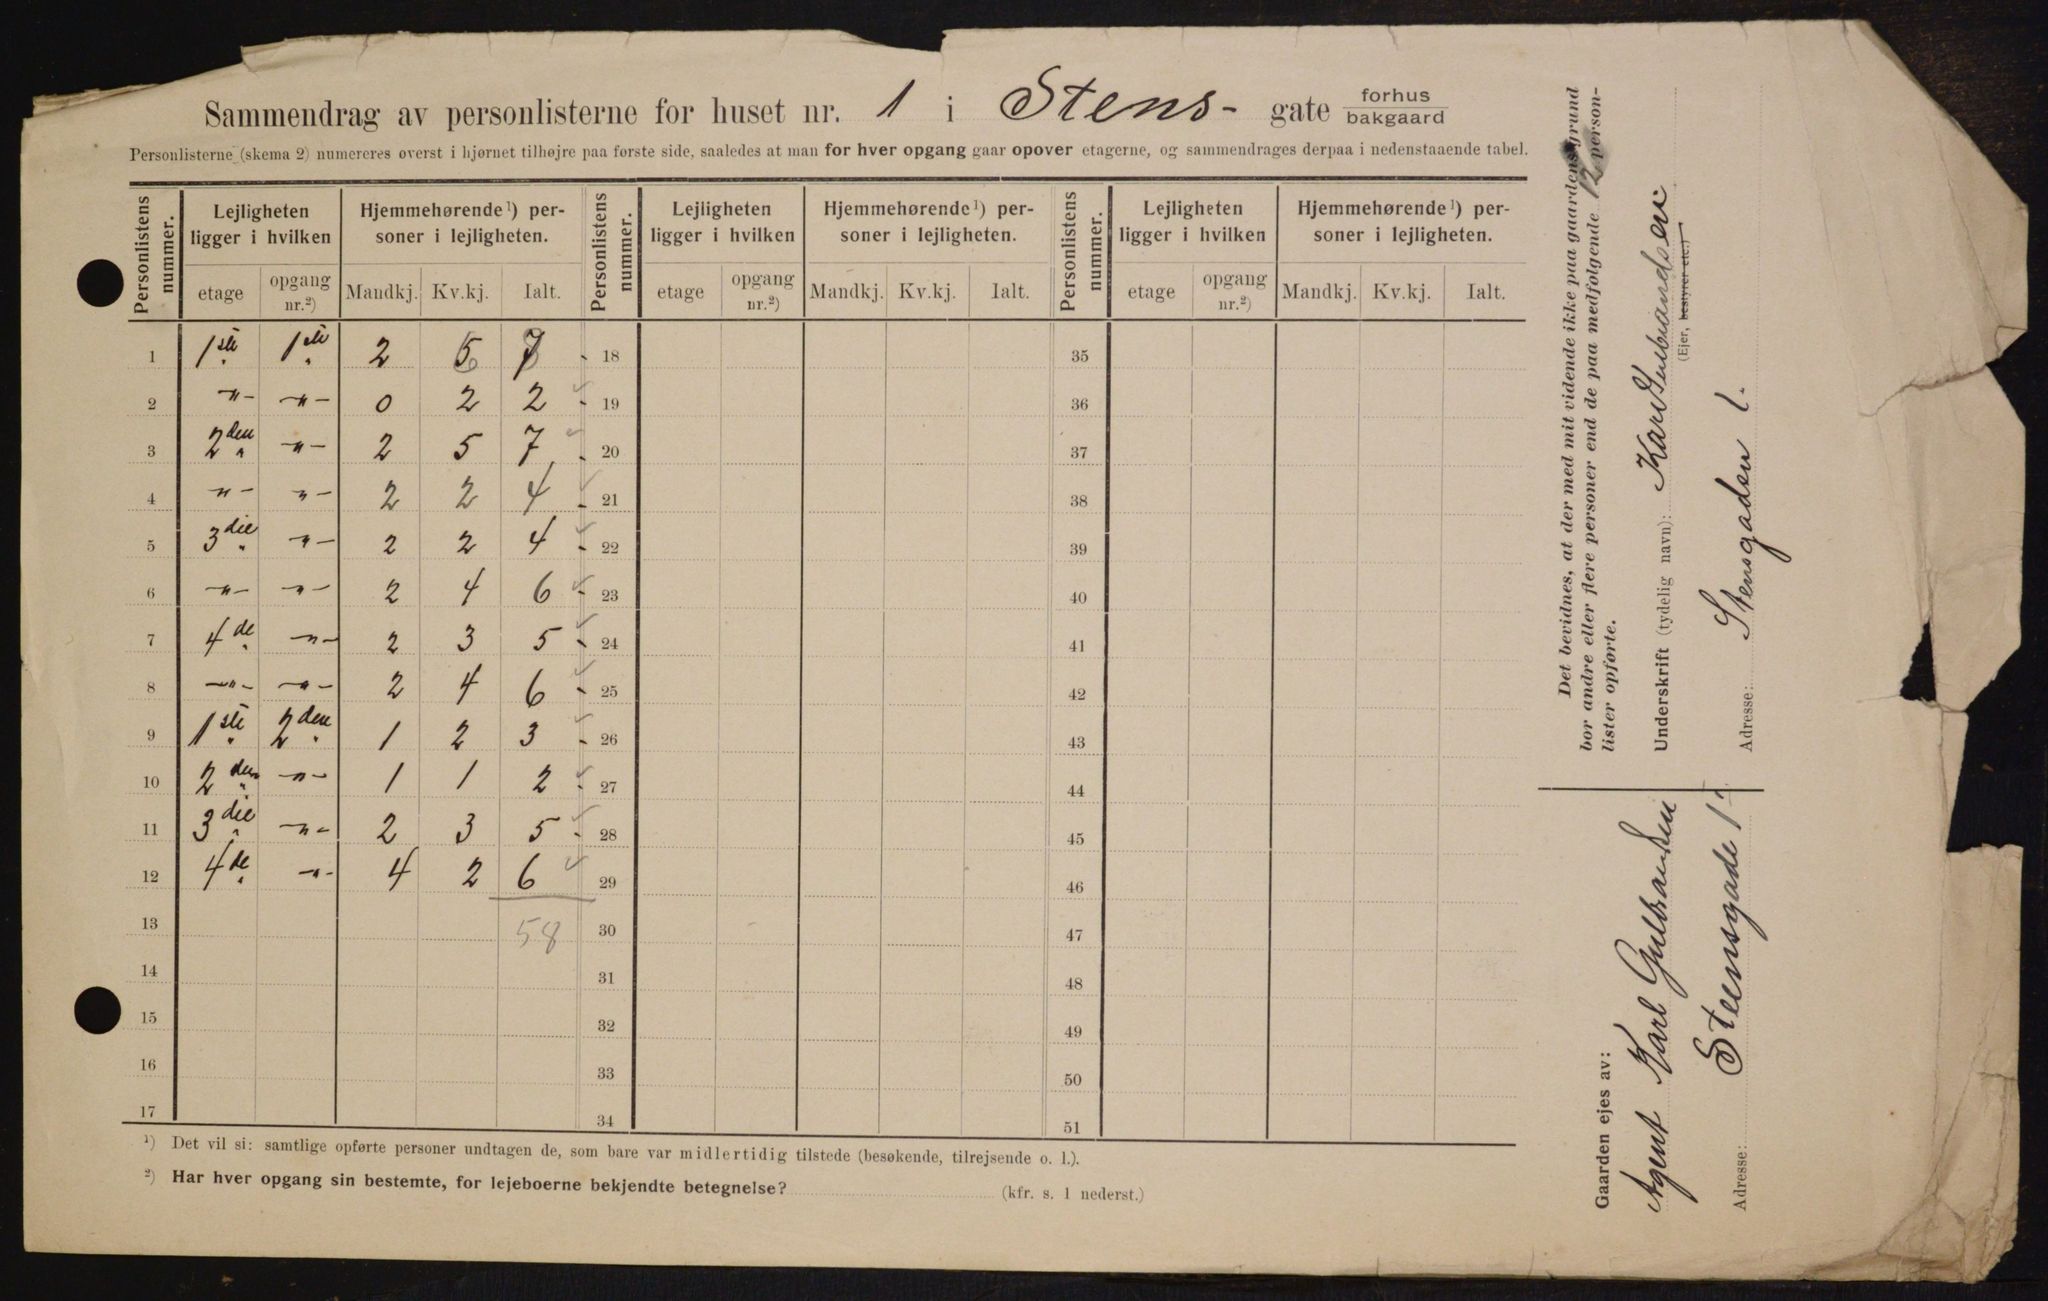 Sammendrag av personlisterne for huset nr. 1 i Stens- gate forhus bakgaard
Personlisterne (skema 2) numereres øverst i hjørnet tilhøjre paa første side, saaledes at man for hver opgang gaar opover etagerne, og sammendrages derpaa i nedenstaaende tabel.
Personlistens nummer. Lejligheten ligger i hvilken Hjemmehørende ¹) personer i lejligheten. Personlistens nummer. Lejligheten ligger i hvilken Hjemmehørende ¹) personer i lejligheten. Personlistens nummer. Lejligheten ligger i hvilken Hjemmehørende ¹) personer i lejligheten.
etage opgang nr.²) Mandkj. Kv.kj. Ialt. etage opgang nr.²) Mandkj. Kv.kj. Ialt. etage opgang nr.²) Mandkj. Kv.kj. Ialt.
1 1ste 1ste 2 18 35
2 -"- -"- 0 2 2 19 36
3 2den -"- 2 5 7 20 37
4 -"- -"- 2 2 4 21 38
5 3die -"- 2 2 4 22 39
6 -"- -"- 2 4 6 23 40
7 4de -"- 2 3 5 24 41
8 -"- -"- 2 4 6 25 42
9 1ste 2den 1 2 3 26 43
10 2den -"- 1 1 2 27 44
11 3die -"- 2 3 5 28 45
12 4de -"- 4 2 6 29 46
13 58 30 47
14 31 48
15 32 49
16 33 50
17 34 51
¹) Det vil si: samtlige opførte personer undtagen de, som bare var midlertidig tilstede (besøkende, tilrejsende o. l.).
²) Har hver opgang sin bestemte, for lejeboerne bekjendte betegnelse? (kfr. s. 1 nederst.)
Det bevidnes, at der med mit vidende ikke paa gaardens grund
bor andre eller flere personer end de paa medfølgende 12 person-
lister opførte.
Underskrift (tydelig navn): Karl Gulbrandsen
(Ejer, bestyrer etc.)
Adresse: Stensgaden 1.
Gaarden ejes av:
Agent Karl Gulbransen
Adresse: Steensgade 1